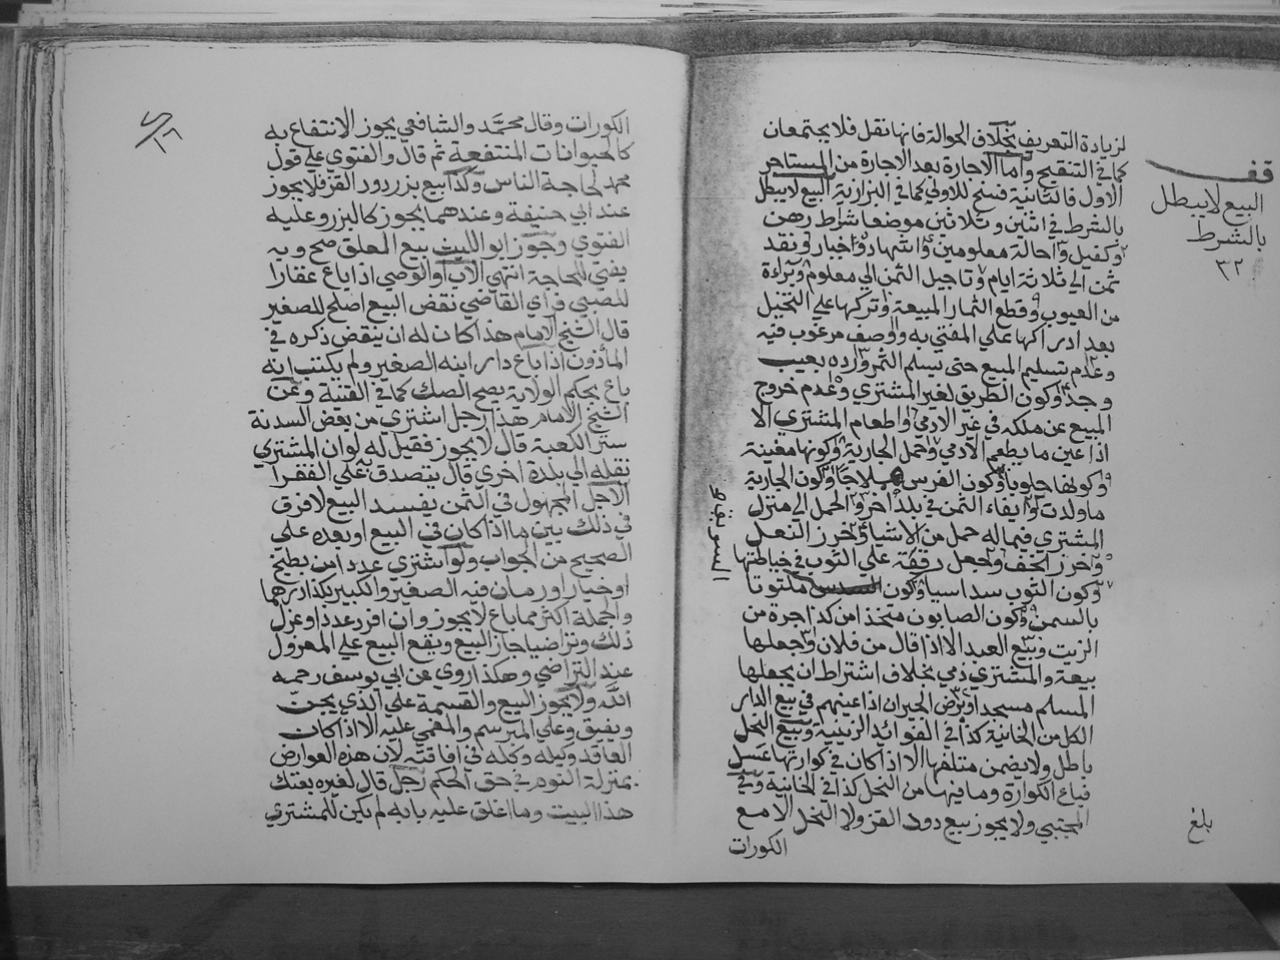 لزيادة التعريف بخلاف الحوالة فانها نقل فلا يجتمعان
كما في التنقيح واما الاجارة بعد الاجارة من المستاجر
الاول فالثانية فسخ للاولي كما في البزازية البيع لا يبطل
بالشرط في اثنين وثلاثين موضعا شرط رهن
وكفيل واحالة معلومين واشهاد واخبار ونقد
ثمن الي ثلاثة ايام وتاجيل الثمن الي معلوم وبراءة
من العيوب وقطع الثمار المبيعة وتركها علي النخيل
بعد ادراكها علي المفتي به ووصف مرغوب فيه
وعدم تسليم المبيع حتى يسلم الثمن ورده بعيب
وجد وكون الطريق لغير المشتري وعدم خروج
المبيع عن ملكه في غير الادمي واطعام المشتري الا
اذا عين ما يطعم الادمي وحمل الجارية وكونها مغنية
وكونها حلوبا وكون الفرس هملاجا وكون الجارية
ما ولدت وايفاء الثمن في بلد اخر والحمل الي منزل
المشتري فيما له حمل من الاشياء وخرز النعل
وخرز الخف وجعل رقعة علي الثوب في خياطتها
وكون الثوب سداسيا وكون ملتوتا
بالسمن وكون الصابون متخذا من كذا جرة من
الزيت وبيع العبد الا اذا قال من فلان وجعلها
بيعة والمشتري ذمي بخلاف اشتراط ان يجعلها
المسلم مسجدا وبرض الجيران اذا عينهم في بيع الدار
الكل من الخانية كذا في الفوائد الزينية وبيع النحل
باطل ولا يضمن متلفها الا اذا كان في كوارتها عسل
فباع الكوارة وما فيها من النحل كذا في الخانية وفي
المجتبي ولا يجوز بيع دود القز ولا النحل الا مع
الكورات
قف
البيع لا يبطل
بالشرط
٣٢
السويق
بلغ
الكورات وقال محمد والشافعي يجوز الانتفاع به
كالحيوانات المنتفعة ثم قال والفتوي علي قول
محمد لحاجة الناس وكذا بيع بزر دود القز فلا يجوز
عند ابي حنيفة وعندهما يجوز كالبزر وعليه
الفتوي وجوز ابو الليث بيع العلق صح وبه
يفتي للحاجة انتهي الاب او الوصي اذا باع عقارا
للصبي فراي القاضي نقض البيع اصلح للصغير
قال الشيخ الامام هذا كان له ان ينقض ذكره في
الماذون اذا باع دار ابنه الصغير ولم يكتب انه
باع بحكم الولاية يصح الصك كما في القنية وعن
الشيخ الامام هذا رجل اشتري من بعض السدنة
ستر الكعبة قال لا يجوز فقيل له لو ان المشتري
نقله الي بلدة اخري قال يتصدق به علي الفقرا
الاجل المجهول في الثمن يفسد البيع لا فرق
في ذلك بين ما اذا كان في البيع او بعده علي
الصحيح من الجواب ولو اشتري عددا من بطيخ
او خيار او رمان فيه الصغير والكبير بكذا درهما
والجملة اكثر مما باع لا يجوز وان افرز عددا وعزل
ذلك وتراضيا جاز البيع ويقع البيع علي المعزول
عند التراضي وهكذا روي عن ابي يوسف رحمه
الله ولا يجوز البيع والقسمة علي الذي يجن
ويفيق وعلي المبرسم والمغمي عليه الا اذا كان
العاقد وكيله وكله في افاقته لان هذه العوارض
بمنزلة النوم في حق الحكم رجل قال لغيره بعتك
هذا البيت وما اغلق عليه بابه لم يكن للمشتري